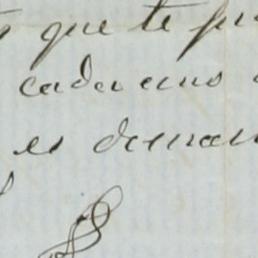 que te
cada uno
es deman